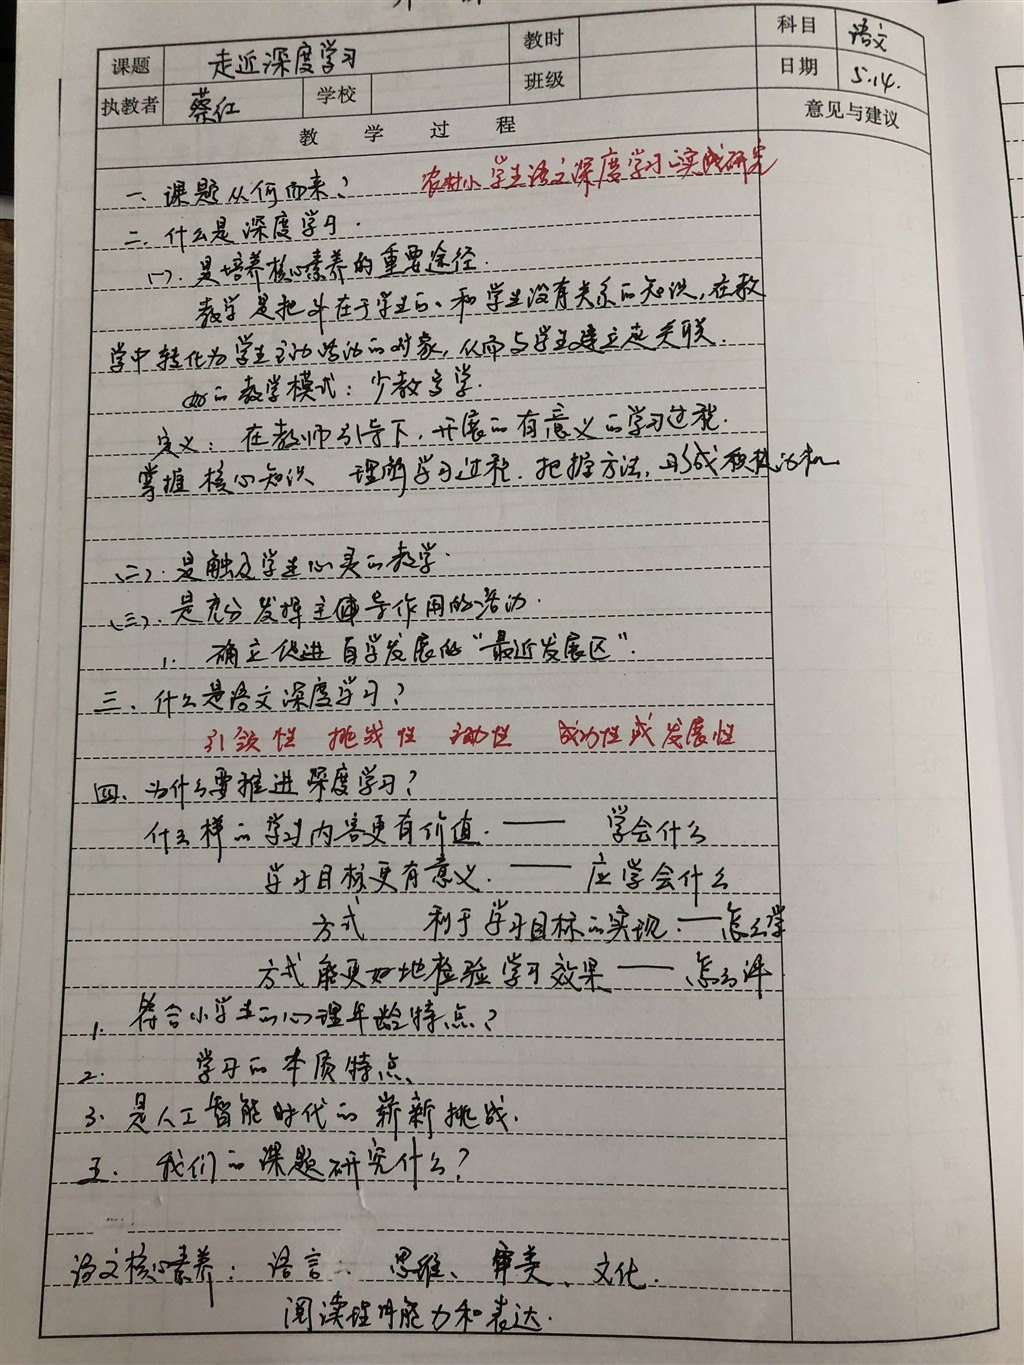 课题 走近深度学习 教时 科目 语文
执教者 蔡红 学校 班级 日期 5.14.
教 学 过 程 意见与建议
一、课题从何而来? 农村小学生语文深度学习的实践研究
二、什么是深度学习.
(一).是培养核心素养的重要途径.
教学是把外在于学生的、和学生没有关系的知识,在教
学中转化为学生主动活动的对象,从而与学生建立起关联.
好的教学模式:少教多学.
定义:在教师引导下,开展的有意义的学习过程.
掌握核心知识 理解学习过程.把握方法,形成积极动机
(二).是触及学生心灵的教学.
(三).是充分发挥主体导作用的活动.
1. 确立促进自学发展的“最近发展区”.
三、什么是语文深度学习?
引领性 挑战性 主动性 成功性或发展性
四、为什么要推进深度学习?
什么样的学习内容更有价值.—— 学会什么
学习目标更有意义.—— 应学会什么
方式 利于学习目标的实现.——怎么学
方式能更好地检验学习效果——怎么评
1. 符合小学生的心理年龄特点?
2. 学习的本质特点、
3. 是人工智能时代的崭新挑战.
五. 我们的课题研究什么?
语文核心素养: 语言、 思维、 审美、文化.
阅读理解能力和表达.